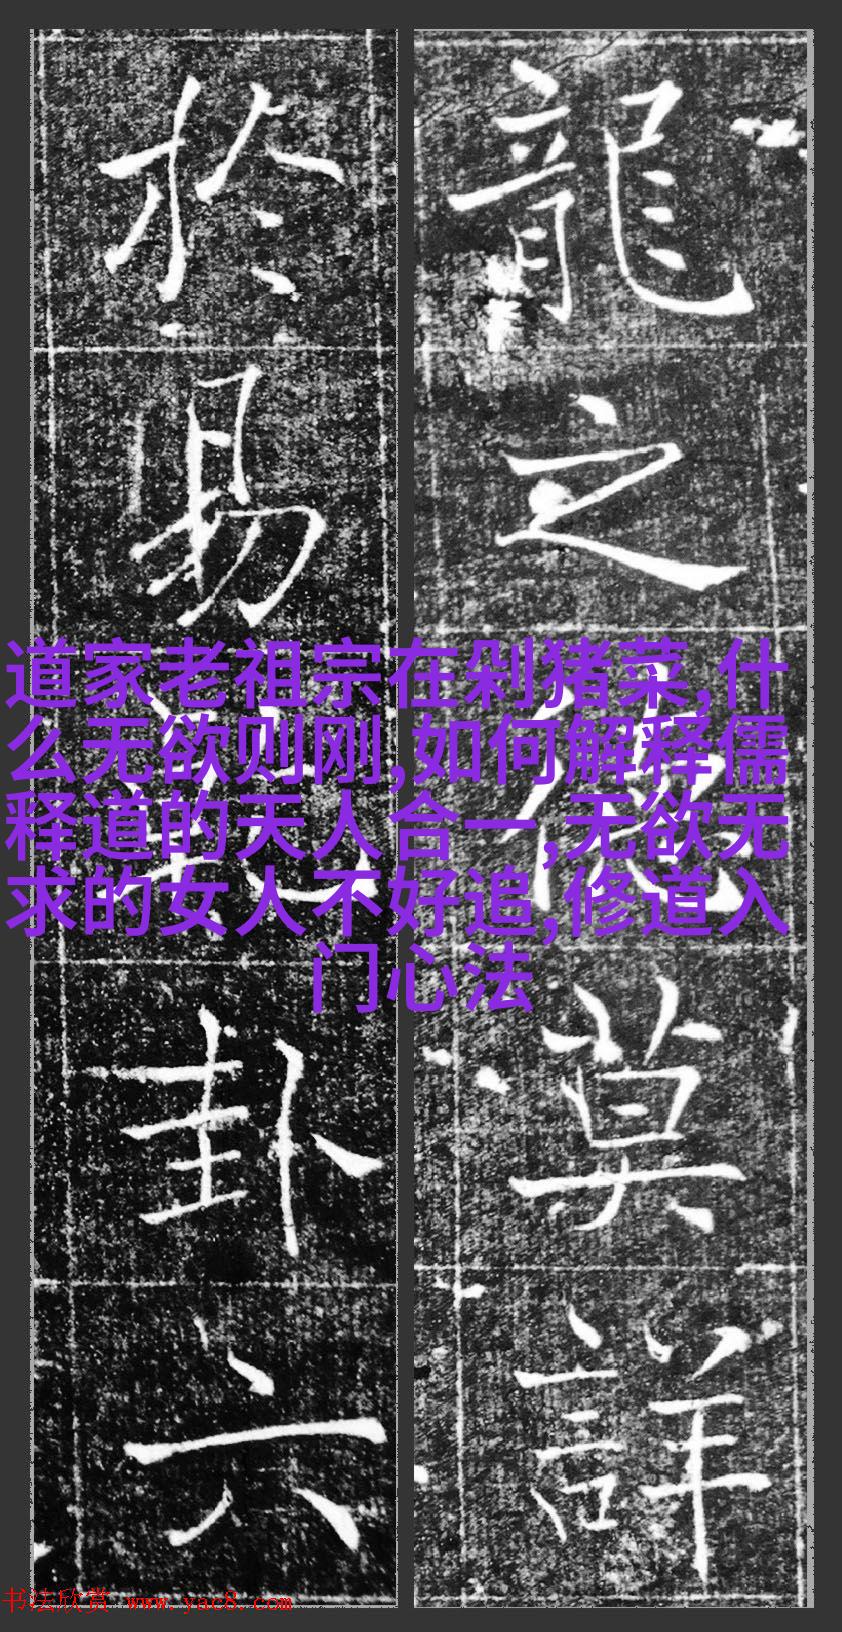 龍之
莫詳
於易
卦六
道家老祖宗在剁猪菜,什
么无欲则刚,如何解释儒
释道的天人合一,无欲无
求的女人不好追,修道入
门心法
书法欣赏 www.yac8.com